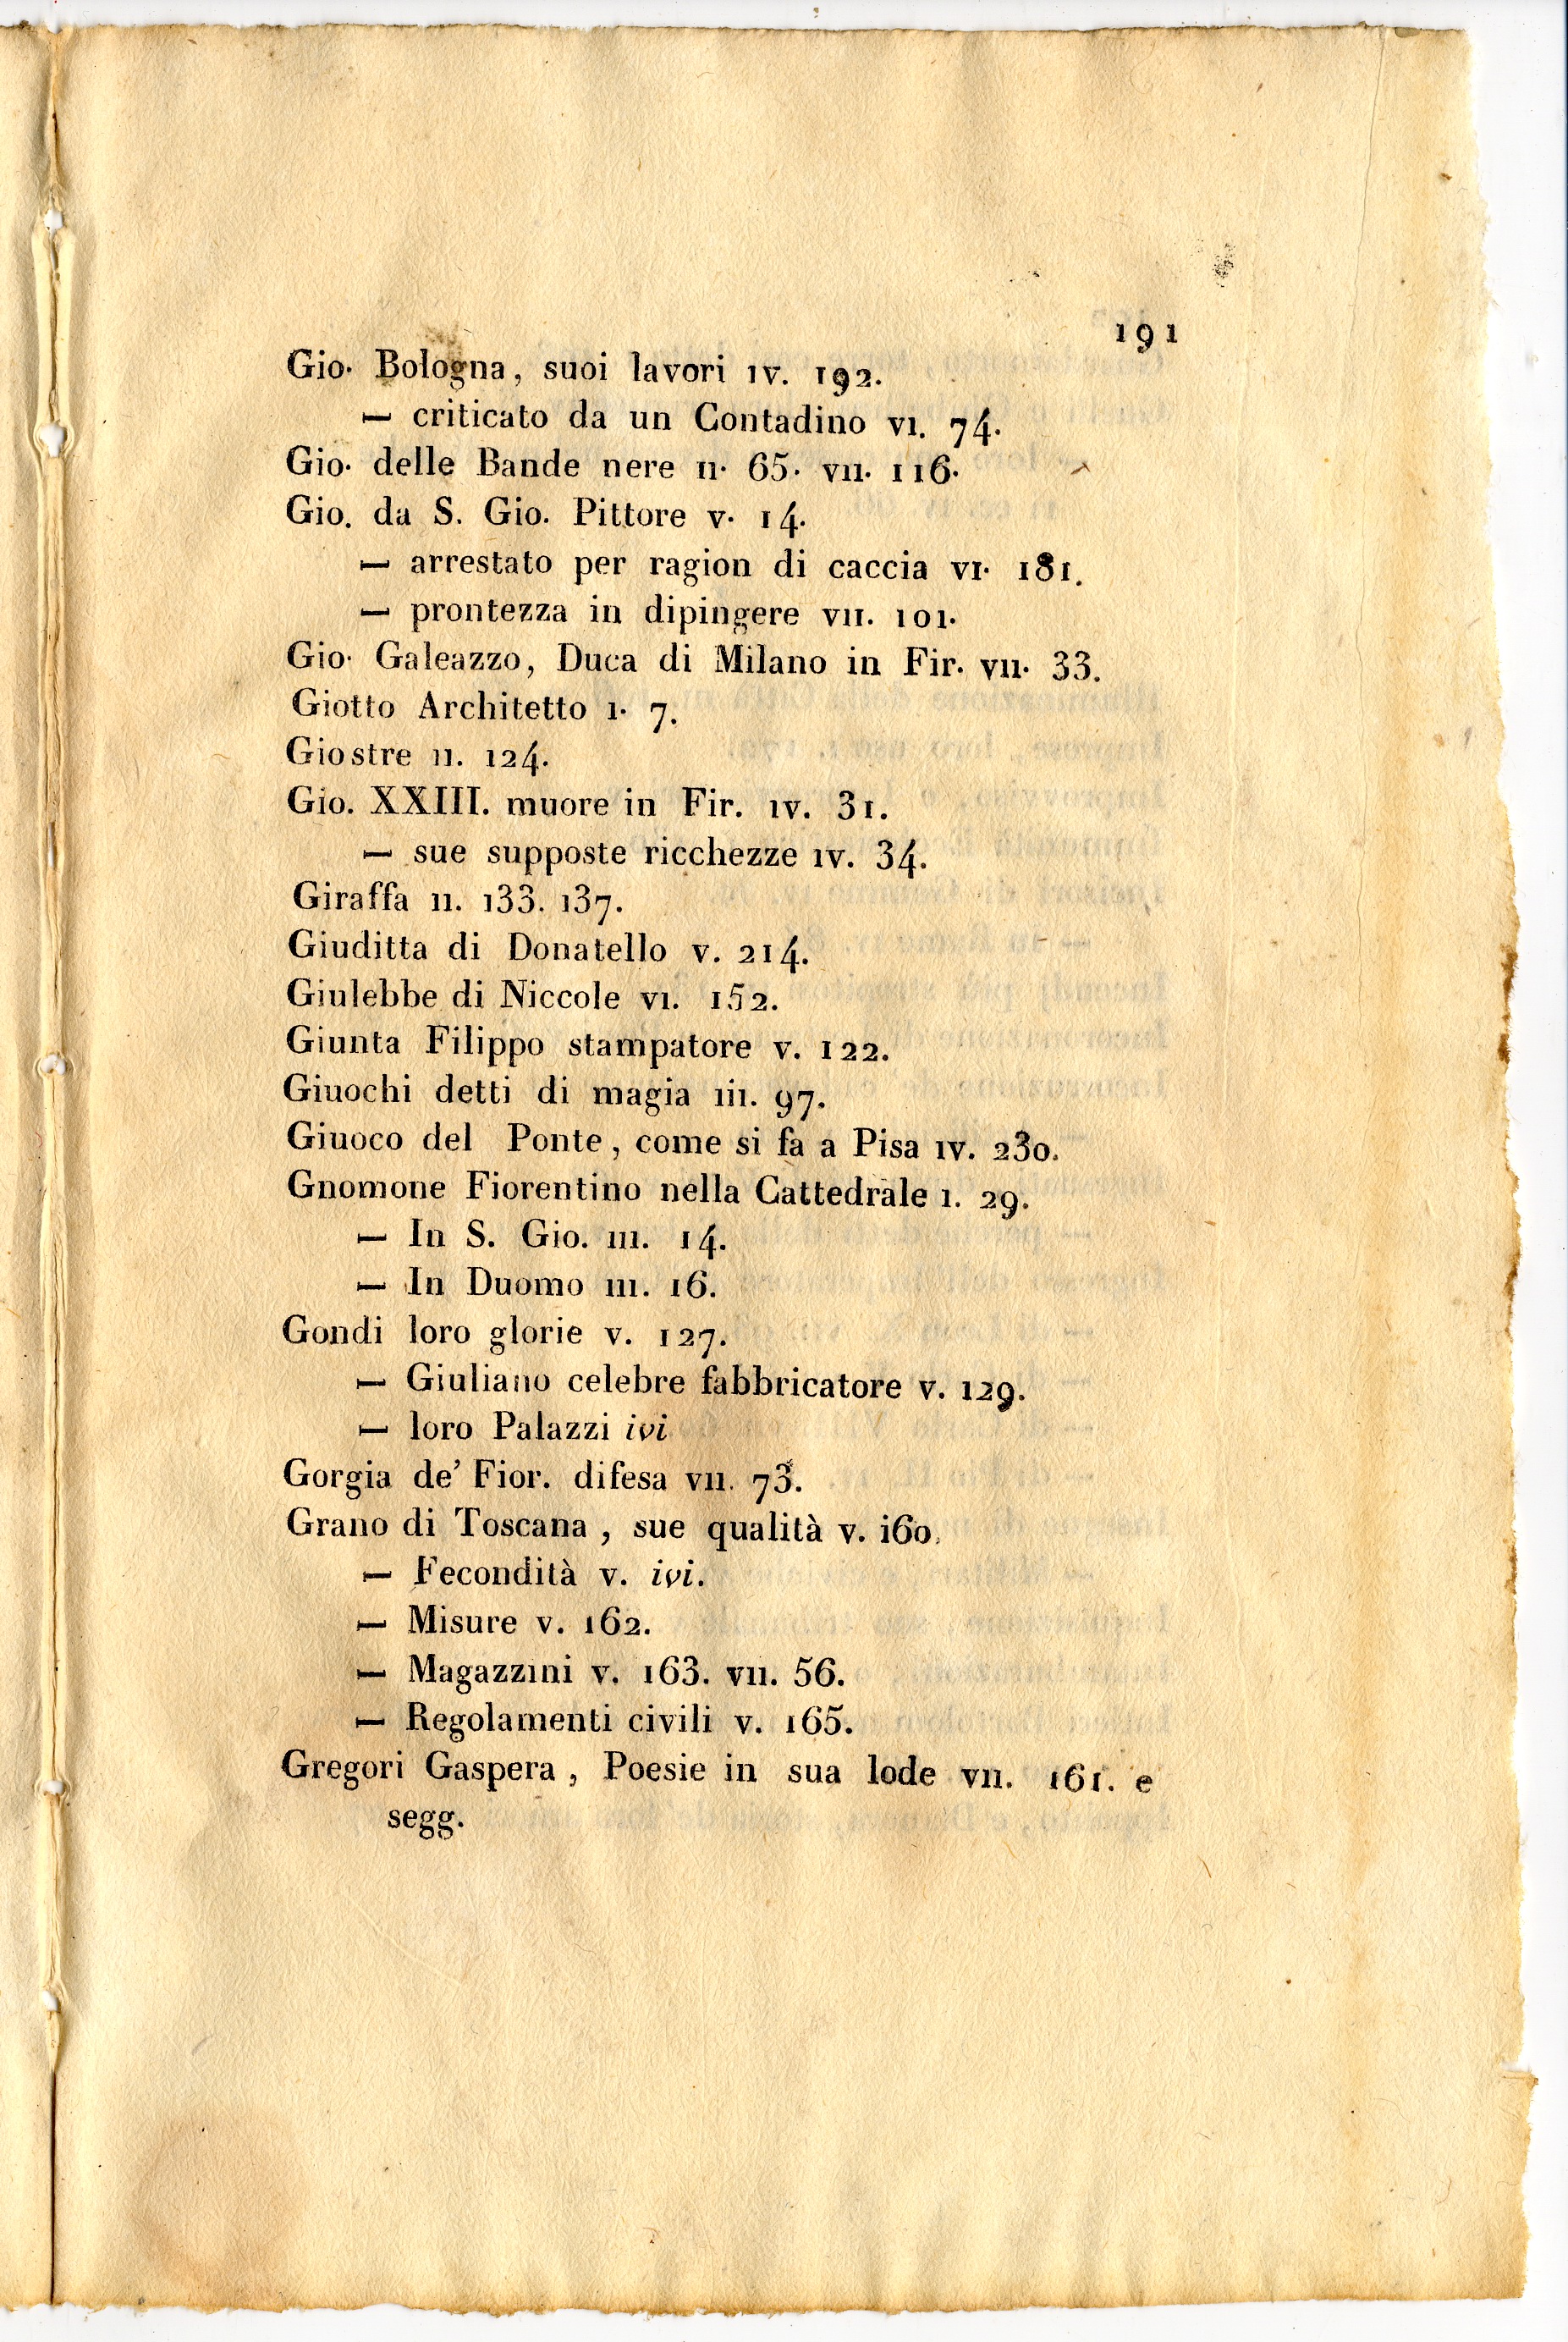 191
Gio. Bologna, suoi lavori IV. 192.
— criticato da un Contadino VI. 74.
Gio. delle Bande nere II. 65. VII. 116.
Gio. da S. Gio. Pittore V. 14.
— arrestato per ragion di caccia VI. 181.
— prontezza in dipingere VII. 101.
Gio. Galeazzo, Duca di Milano in Fir. VII. 33.
Giotto Architetto I. 7.
Giostre II. 124.
Gio. XXIII. muore in Fir. IV. 31.
— sue supposte ricchezze IV. 34.
Giraffa II. 133. 137.
Giuditta di Donatello V. 214.
Giulebbe di Niccole VI. 152.
Giunta Filippo stampatore V. 122.
Giuochi detti di magia III. 97.
Giuoco del Ponte, come si fa a Pisa IV. 230.
Gnomone Fiorentino nella Cattedrale I. 29.
— In S. Gio. III. 14.
— In Duomo III. 16.
Gondi loro glorie V. 127.
— Giuliano celebre fabbricatore V. 129.
— loro Palazzi ivi
Gorgia de' Fior. difesa VII. 73.
Grano di Toscana, sue qualità V. 160.
— Fecondità V. ivi.
— Misure V. 162.
— Magazzini V. 163. VII. 56.
— Regolamenti civili V. 165.
Gregori Gaspera, Poesie in sua lode VII. 161. e
segg.